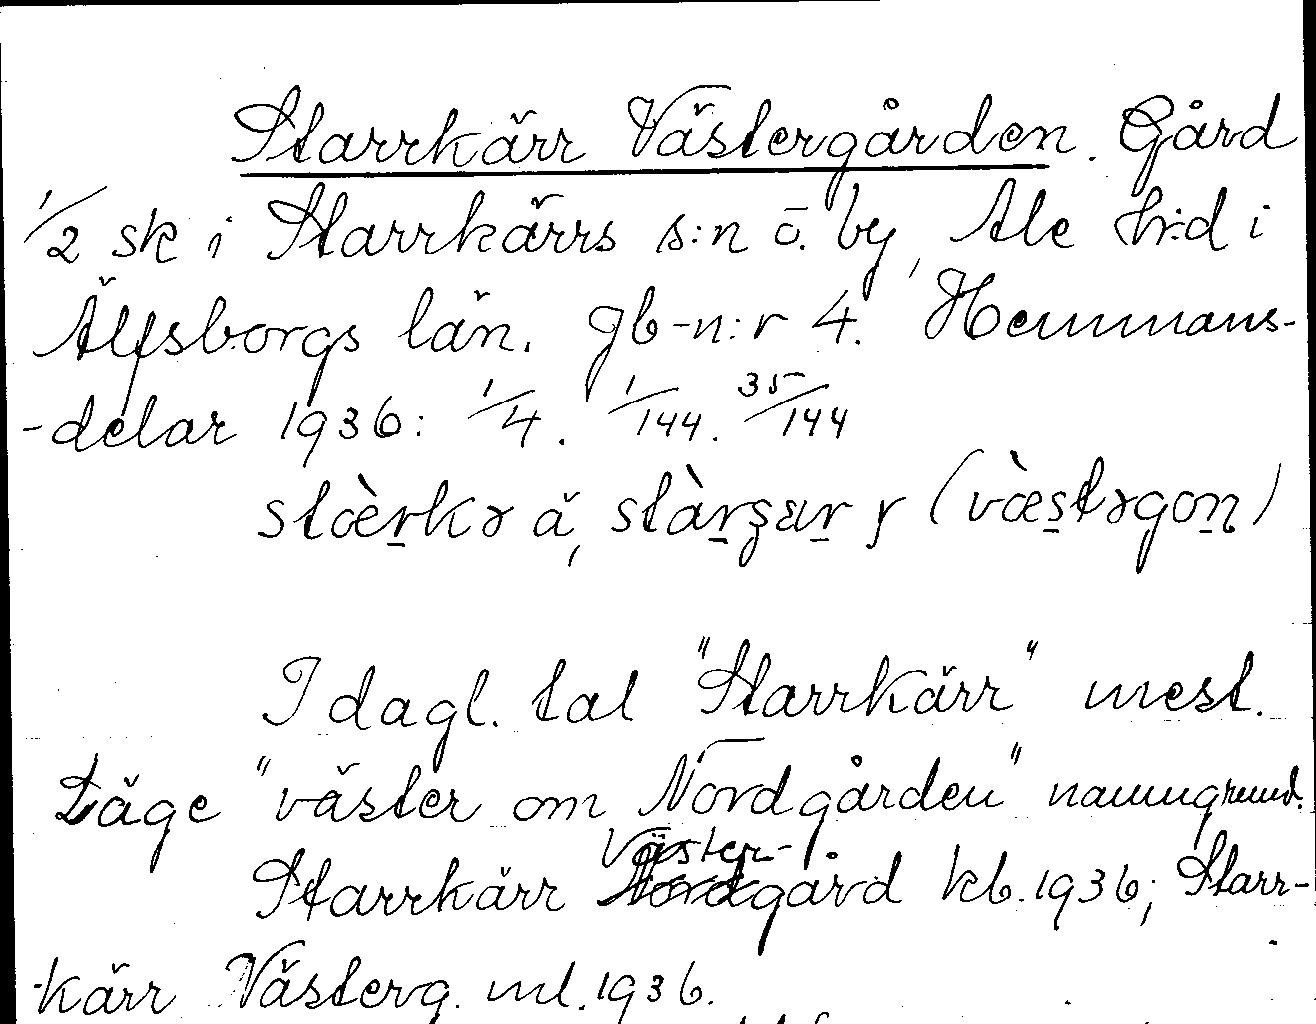 Starrkärr Västergården. Gård
1/2 sk i Starrkärrs s:n o. by, Ale h:d i
Älfsborgs län. Jb-n:r 4. Hemmans-
-delar 1936: 1/4. 1/144. 35/144
stæ̀rkə ä, stàrʒær ɼ (væ̀stəgon)
I dagl. tal "Starrkärr" mest.
Läge "väster om Nordgården" namngrund.
Väster-
Starrkärr Nordgård kb. 1936; Starr-
-kärr Västerg. ml. 1936.